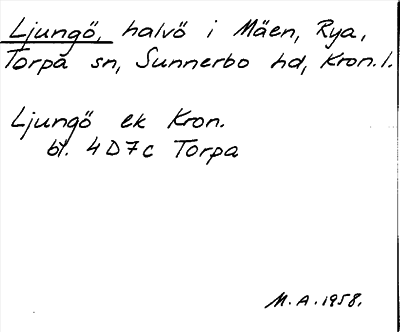 Ljungö, halvö i Mäen, Rya,
Torpa sn, Sunnerbo hd, Kron.l.
Ljungö ek Kron.
bl. 4D7c Torpa
M.A. 1958.